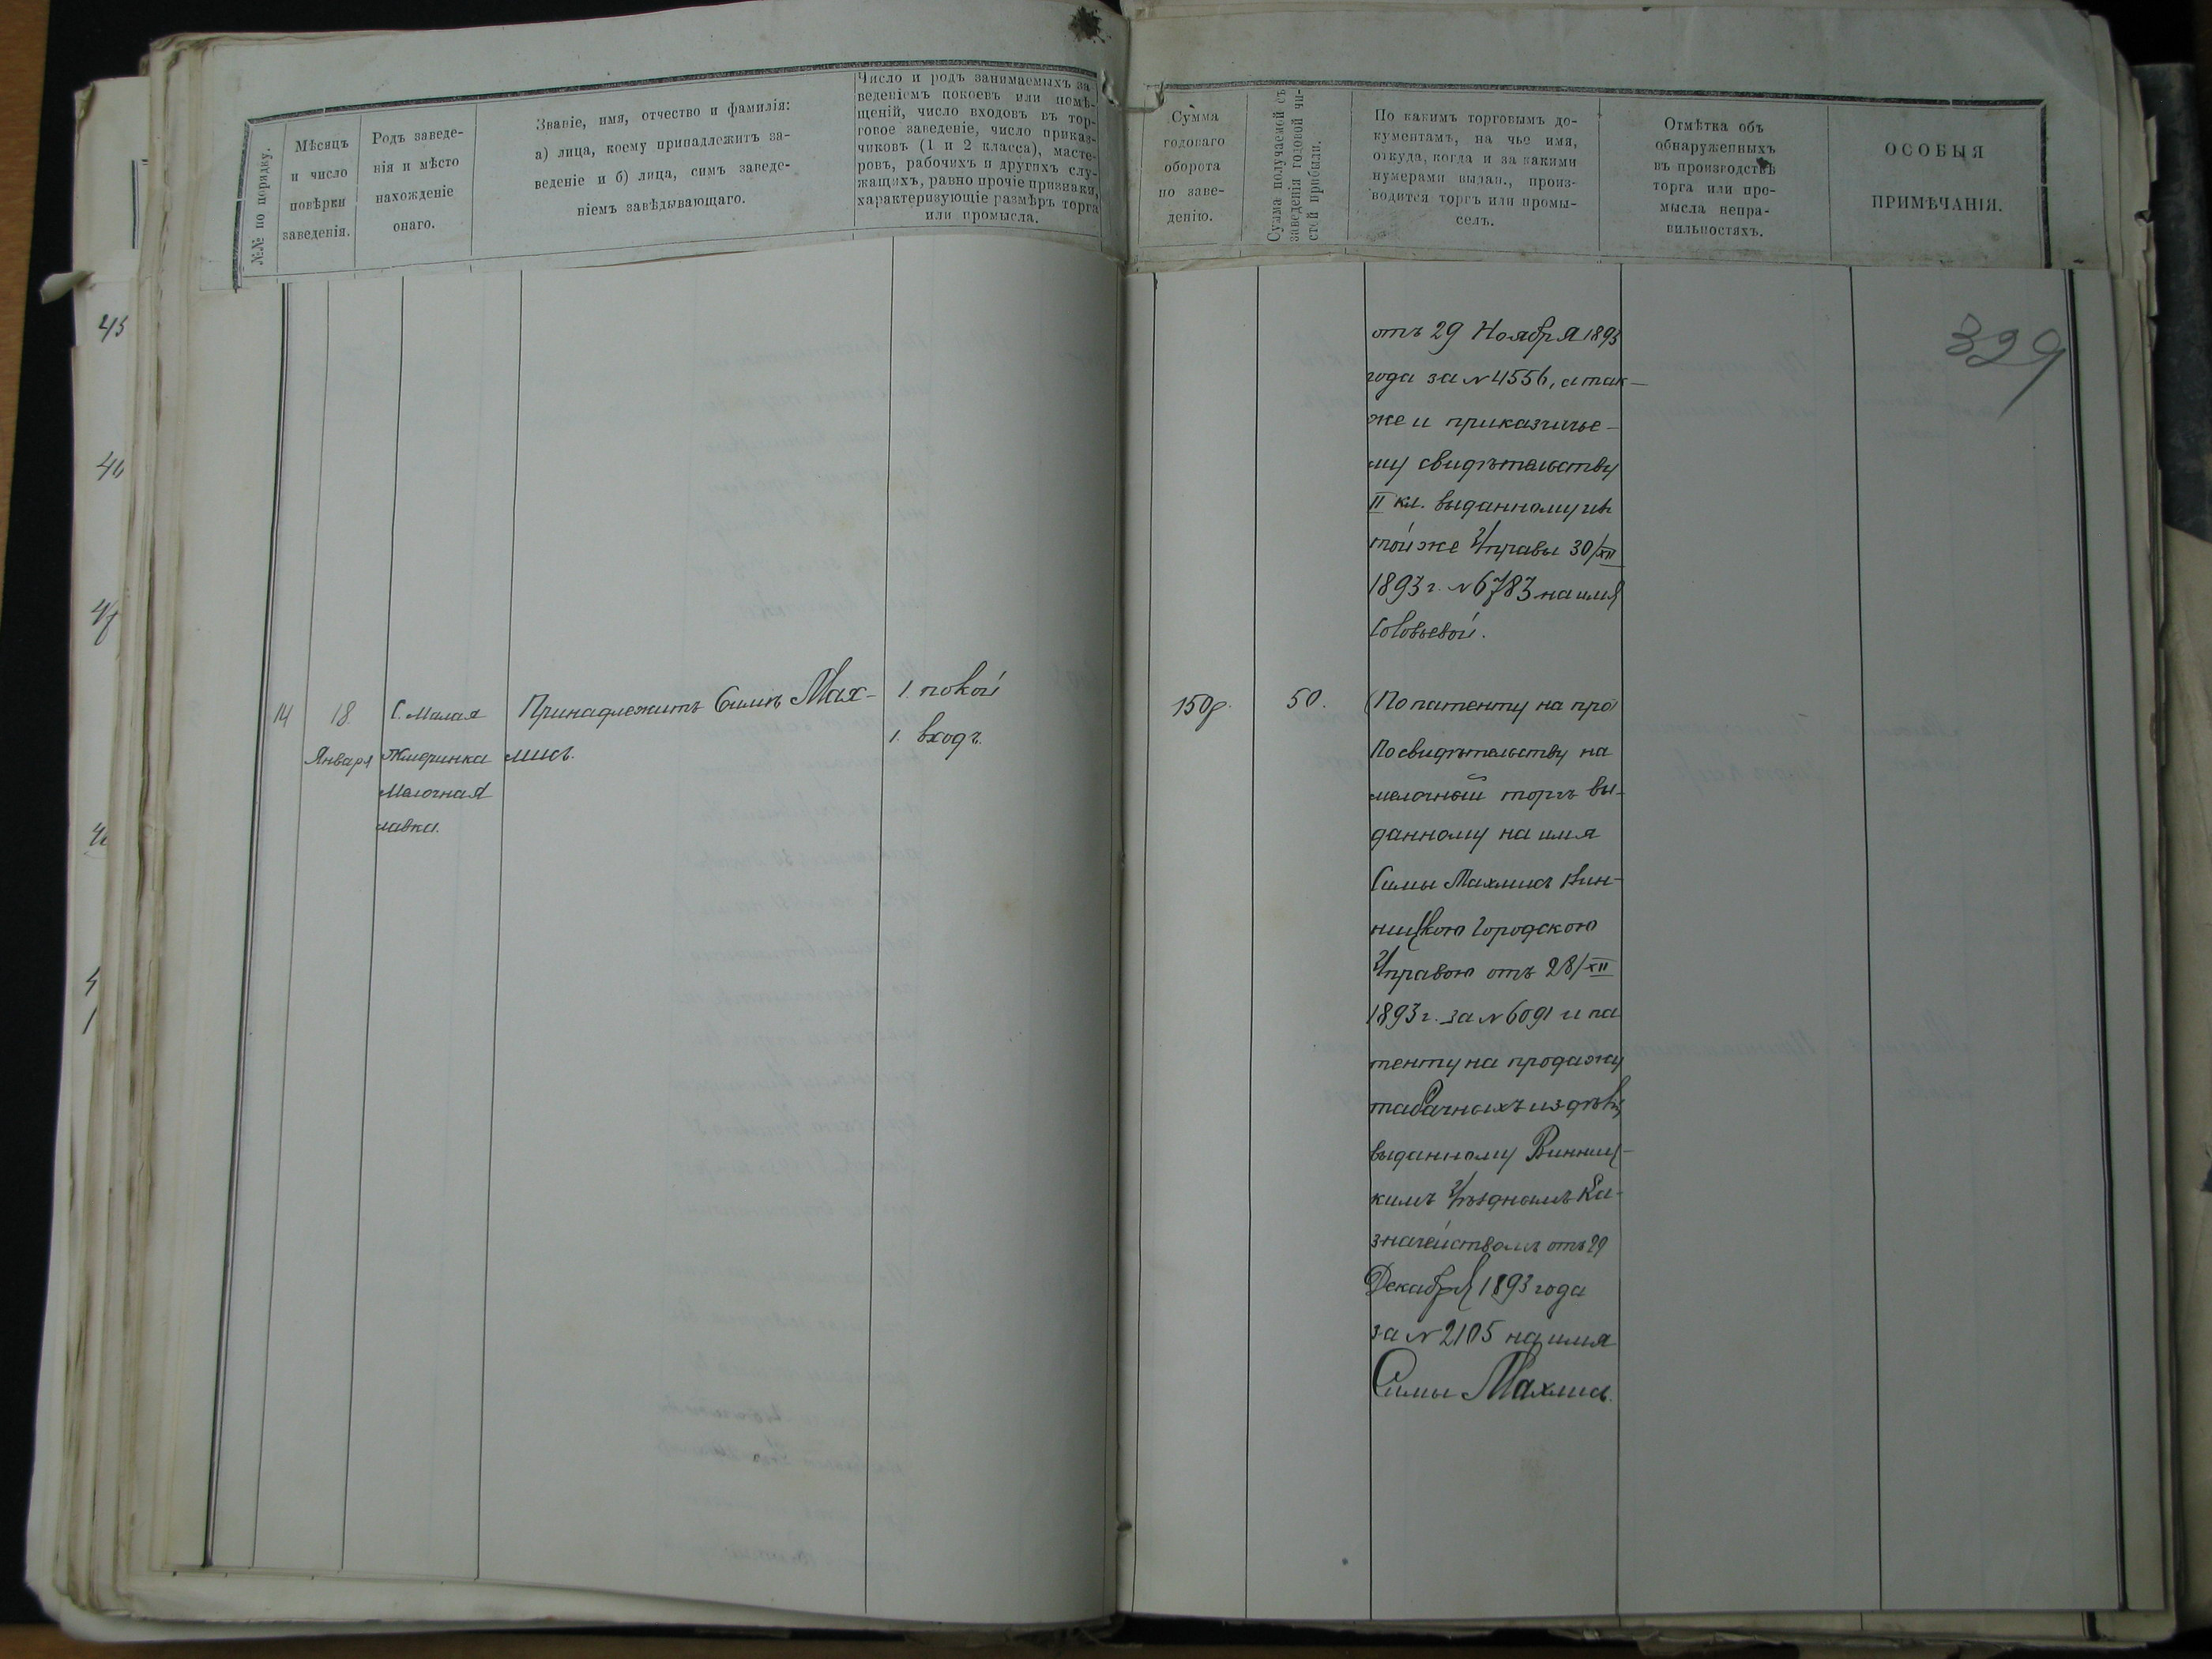 №№ по порядку.
Мѣсяцъ
и число
повѣрки
заведенія.
Родъ заведе-
нія и мѣсто
нахожденіе
онаго.
Званіе, имя, отчество и фамилія:
а) лица, коему принадлежитъ за-
веденіе и б) лица, симъ заведе-
ніемъ завѣдывающаго.
Число и родъ занимаемыхъ за
веденіемъ покоевъ или помѣ-
щеній, число входовъ въ тор-
говое заведеніе, число приказ-
чиковъ (1 и 2 класса), масте-
ровъ, рабочихъ и другихъ слу-
жащихъ, равно прочіе признаки,
характеризующіе размѣръ торга
или промысла.
Сумма
годоваго
оборота
по заве-
денію.
Сумма получаемой съ
заведенія годовой чи-
стой прибыли.
По какимъ торговымъ до-
кументамъ, на чье имя,
откуда, когда и за какими
нумерами выдан., произ-
водится торгъ или промы-
селъ.
Отмѣтка объ
обнаруженныхъ
въ производствѣ
торга или про-
мысла непра-
вильностяхъ.
ОСОБЫЯ
ПРИМѢЧАНІЯ.
329
45
46
47
отъ 29 Ноября 1893
года за № 4556, а так-
же и приказчичье-
му свидѣтельству
II кл. выданному изъ
той же Управы 30/XII
1893 г. № 6783 на имя
Соловьевой.
14
18
Января
С. Малая
Жмеринка
Мелочная
лавка.
Принадлежитъ Симѣ Мах-
лисъ.
1. покой
1. входъ.
150 р.
50.
(По патенту на про
По свидѣтельству на
мелочной торгъ вы-
данному на имя
Симы Махлисъ Вин-
ницкою Городскою
Управою отъ 28/XII
1893 г. за № 6091 и па
тенту на продажу
табачныхъ издѣлій
выданному Винниц-
кимъ Уѣзднымъ Ка-
значействомъ отъ 29
Декабря 1893 года
за № 2105 на имя
Симы Махлисъ.